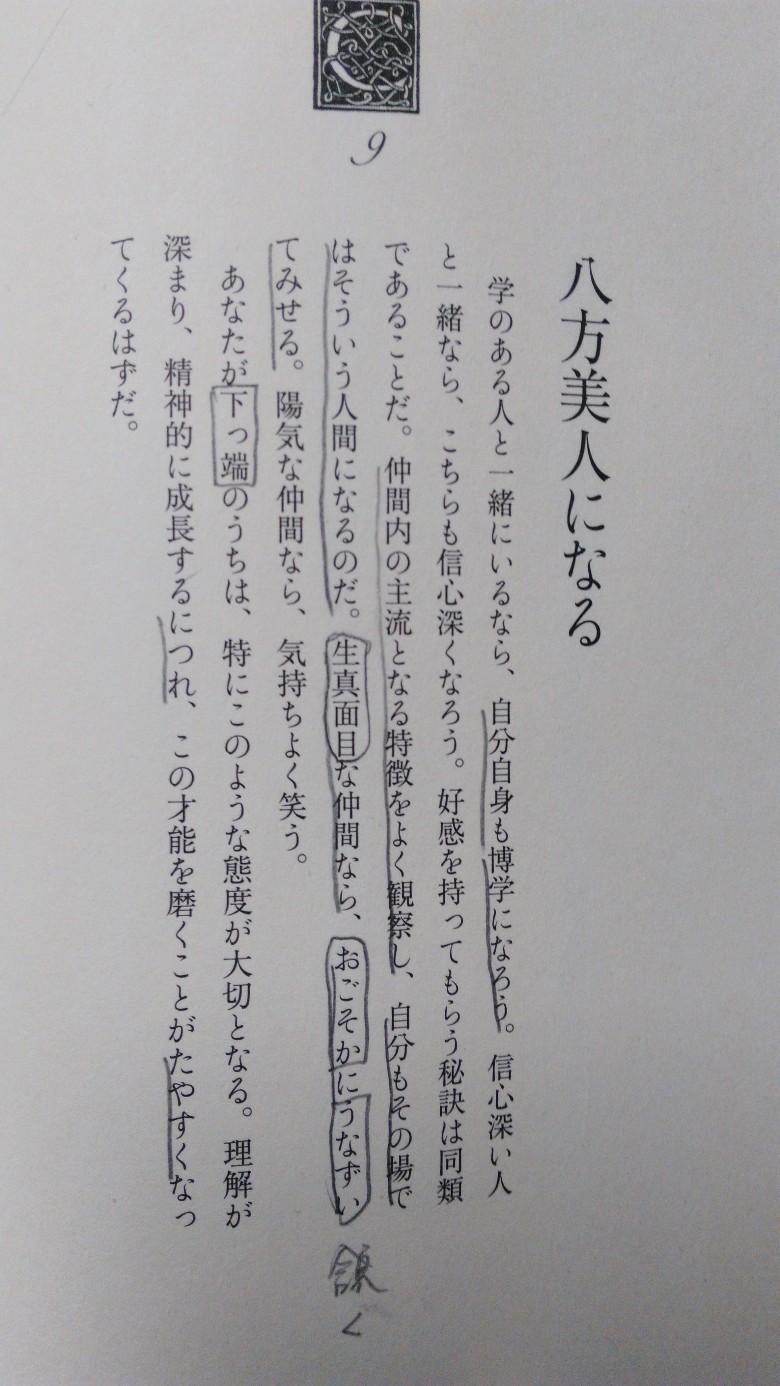 9
八方美人になる
学のある人と一緒にいるなら、自分自身も博学になろう。信心深い人
と一緒なら、こちらも信心深くなろう。好感を持ってもらう秘訣は同類
であることだ。仲間内の主流となる特徴をよく観察し、自分もその場で
はそういう人間になるのだ。生真面目な仲間なら、おごそかにうなずい
てみせる。陽気な仲間なら、気持ちよく笑う。
あなたが下っ端のうちは、特にこのような態度が大切となる。理解が
深まり、精神的に成長するにつれ、この才能を磨くことがたやすくなっ
てくるはずだ。
く